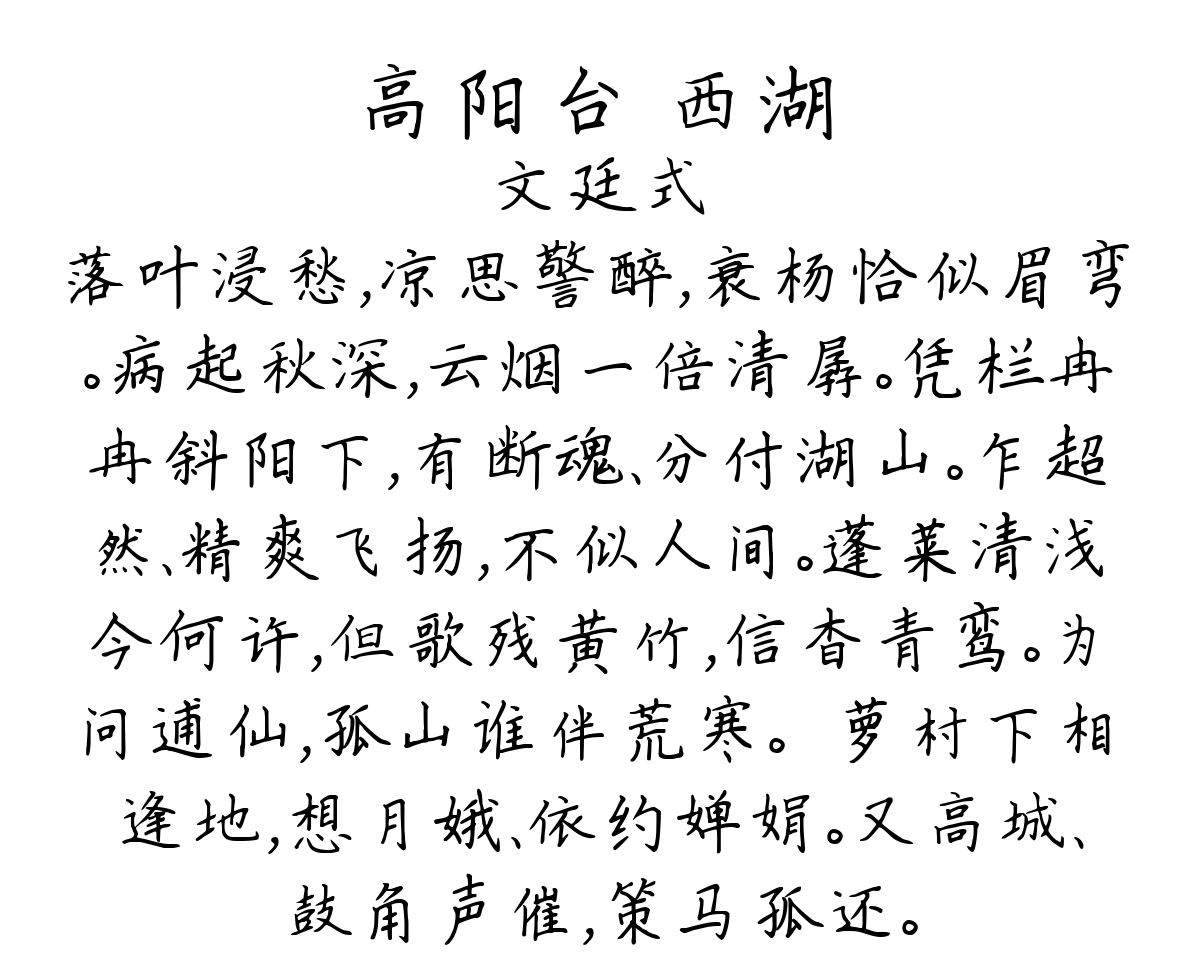 高阳台 西湖
文廷式
落叶浸愁,凉思警醉,衰杨恰似眉弯
。病起秋深,云烟一倍清孱。凭栏冉
冉斜阳下,有断魂、分付湖山。乍超
然、精爽飞扬,不似人间。蓬莱清浅
今何许,但歌残黄竹,信杳青鸾。为
问逋仙,孤山谁伴荒寒。 萝村下相
逢地,想月娥、依约婵娟。又高城、
鼓角声催,策马孤还。